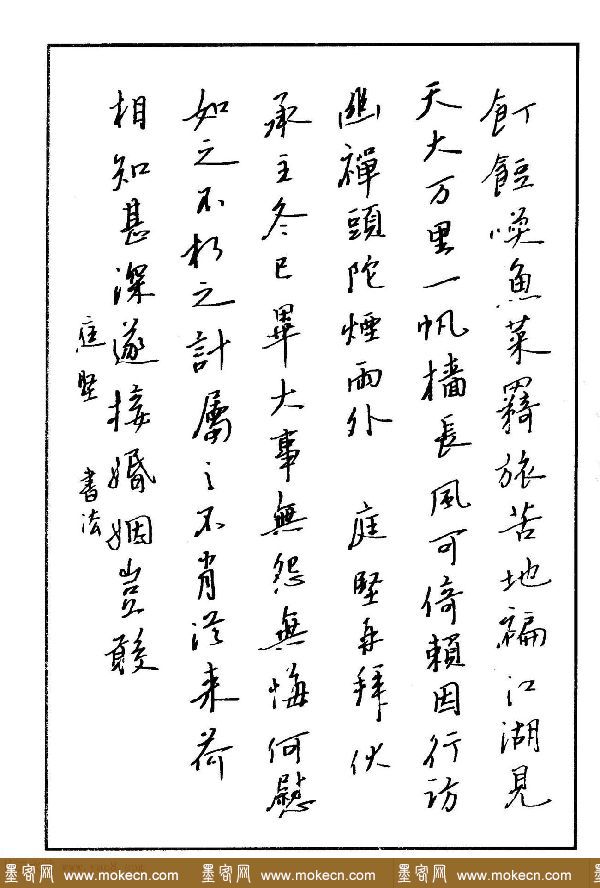 飣餖喚魚菜羇旅苦地褊江湖見
天大万里一帆檣長風可倚賴因行訪
幽禪頭陀煙雨外 庭堅再拜伏
承主冬已畢大事無怨無悔何慰
如之不朽之計屬之不肖從来荷
相知甚深遂接婚姻豈敢
庭堅 書法
墨客网 www.mokecn.com 墨客网 www.mokecn.com 墨客网 www.mokecn.com 墨客网 www.mokecn.com